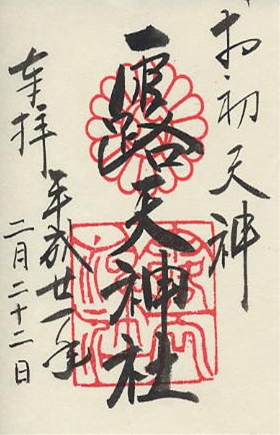 お初天神
露天神社
奉拝
平成廿一年
二月二十二日